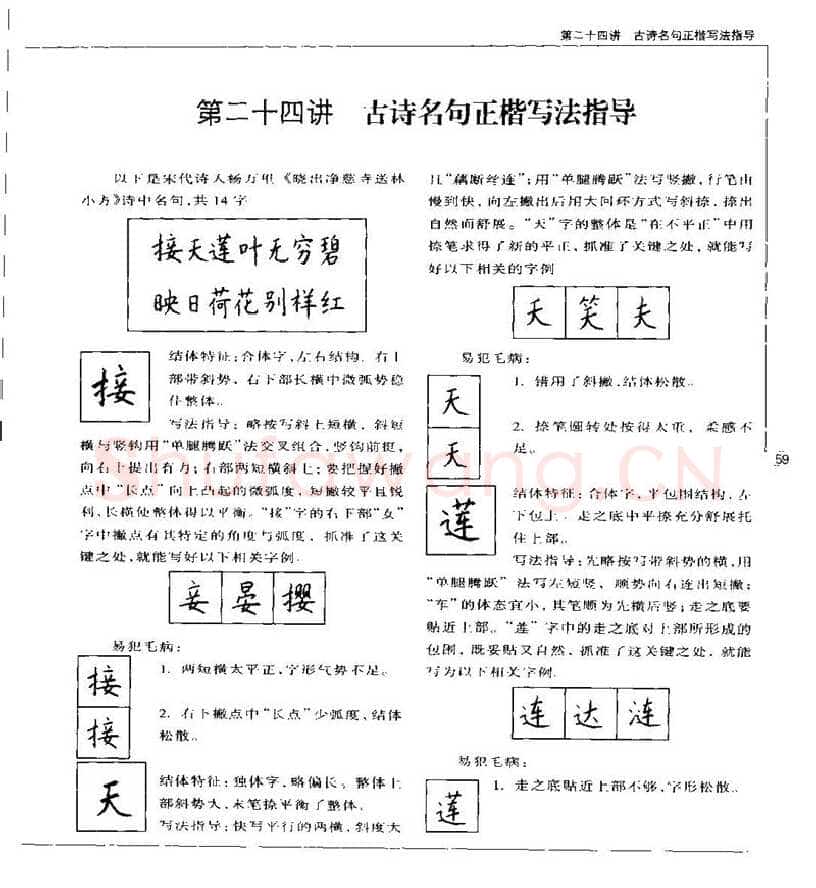 第二十四讲 古诗名句正楷写法指导
第二十四讲 古诗名句正楷写法指导
以下是宋代诗人杨万里《晓出净慈寺送林
小寿》诗中名句,共14字
接天莲叶无穷碧
映日荷花别样红
接
结体特征:合体字,左右结构。右上
部带斜势。右下部长横中微弧势稳
住整体。
写法指导:略按写斜上短横。斜短
横与竖钩用“单腿腾跃”法交叉组合,竖钩前挺,
向右上提出有力;右部两短横斜上;要把握好撇
点中“长点”向上凸起的微弧度,短撇较平且锐
利,长横使整体得以平衡。“接”字的右下部“女”
字中撇点有其特定的角度与弧度。抓准了这关
键之处,就能写好以下相关字例。
妾 晏 撄
易犯毛病:
接
1. 两短横太平正,字形气势不足。
接
2. 右下撇点中“长点”少弧度、结体
松散。
天
结体特征:独体字,略偏长。整体上
部斜势大,末笔捺平衡了整体。
写法指导:快写平行的两横,斜度大
且“藕断丝连”;用“单腿腾跃”法写竖撇,行笔由
慢到快,向左撇出后用大回环方式写斜捺,捺出
自然而舒展。“天”字的整体是“在不平正”中用
捺笔求得了新的平正,抓准了关键之处,就能写
好以下相关的字例
夭 笑 夫
易犯毛病:
天
1. 错用了斜撇,结体松散。
天
2. 捺笔圆转处按得太重,柔感不
足。
莲
结体特征:合体字,半包围结构。左
下包上。走之底中平捺充分舒展托
住上部。
写法指导:先略按写带斜势的横,用
“单腿腾跃”法写左短竖,顺势向右连出短撇;
“车”的体态宜小,其笔顺为先横后竖;走之底要
贴近上部。“莲”字中的走之底对上部所形成的
包围,既妥贴又自然。抓准了这关键之处,就能
写为以下相关字例。
连 达 涟
易犯毛病:
莲
1. 走之底贴近上部不够,字形松散。
59
Shufawang.CN